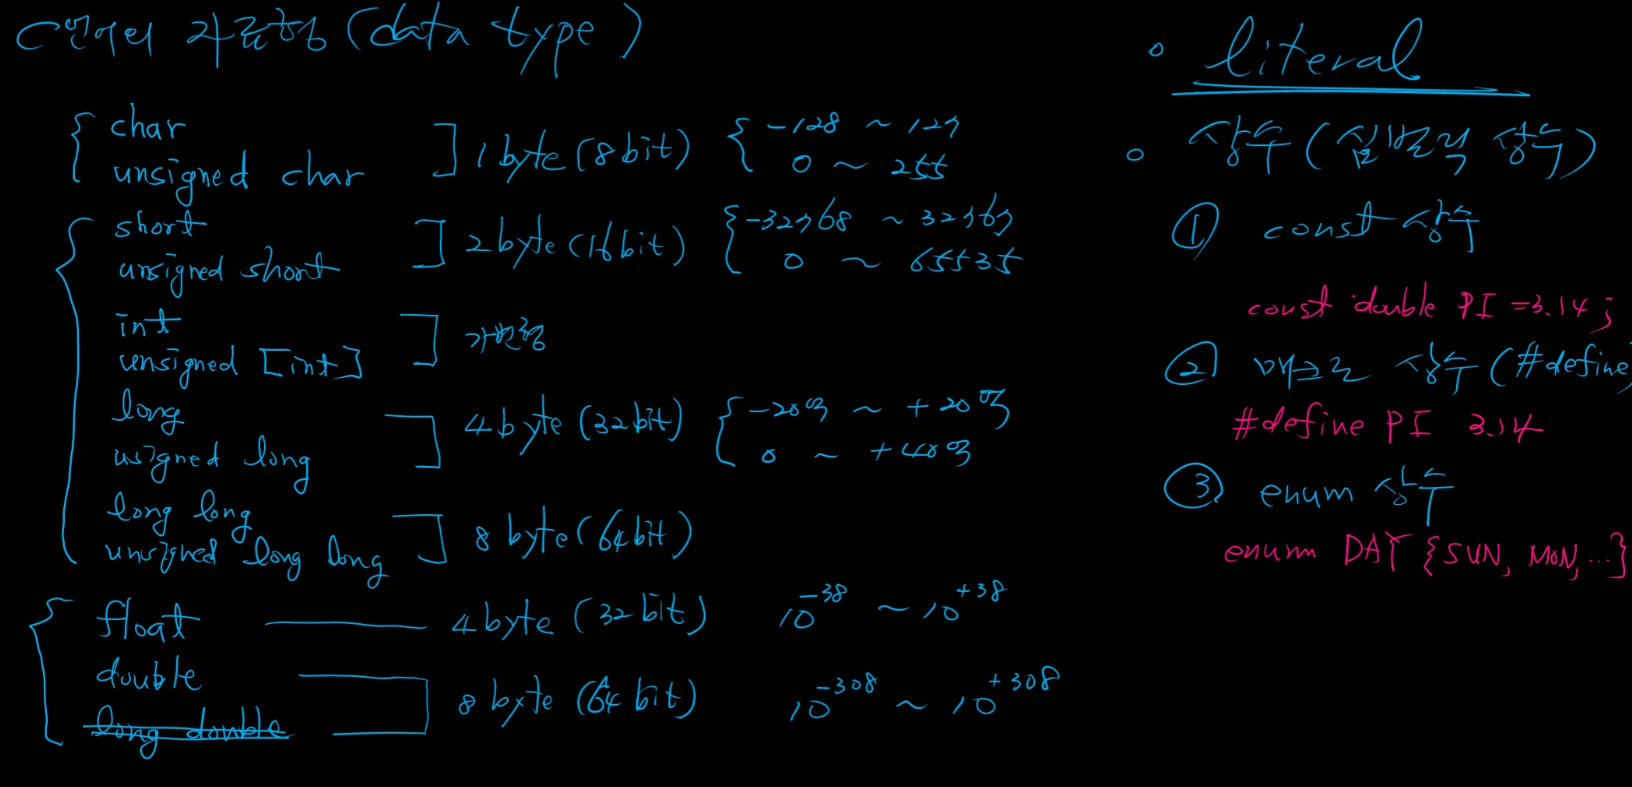 C언어의 자료형 (data type)
char
unsigned char
1 byte (8 bit)
-128 ~ 127
0 ~ 255
short
unsigned short
2 byte (16 bit)
-32768 ~ 32767
0 ~ 65535
int
unsigned [int]
가변형
long
usigned long
4 byte (32 bit)
-20억 ~ +20억
0 ~ +40억
long long
unsigned long long
8 byte (64 bit)
float
4 byte (32 bit)
10^-38 ~ 10^+38
double
long double
8 byte (64 bit)
10^-308 ~ 10^+308
literal
상수 (심벌릭 상수)
① const 상수
const double PI = 3.14;
② 매크로 상수 (#define
#define PI 3.14
③ enum 상수
enum DAY {SUN, MON, ...}